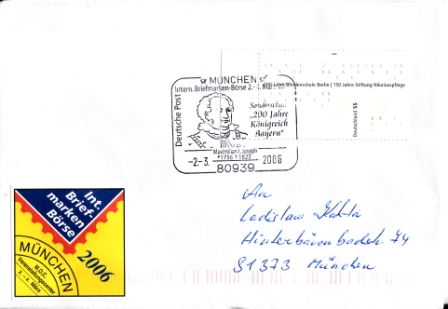 MÜNCHEN
Intern. Briefmarken-Börse 2.-
Jahre Blindenschule Berlin | 150 Jahre Stiftung Nikolauspflege
Deutsche Post
Sonderschau
"200 Jahre
Königreich
Bayern"
Deutschland 55
Maximilian I. Joseph
*1756 †1825
-2-3 2006
80939
Int.
Brief-
marken
Börse
2006
MÜNCHEN
M.O.C.
Veranstaltungscenter
2. - 4. März
An
Ladislaus
Hinterbärenbadstr. 74
81373 München